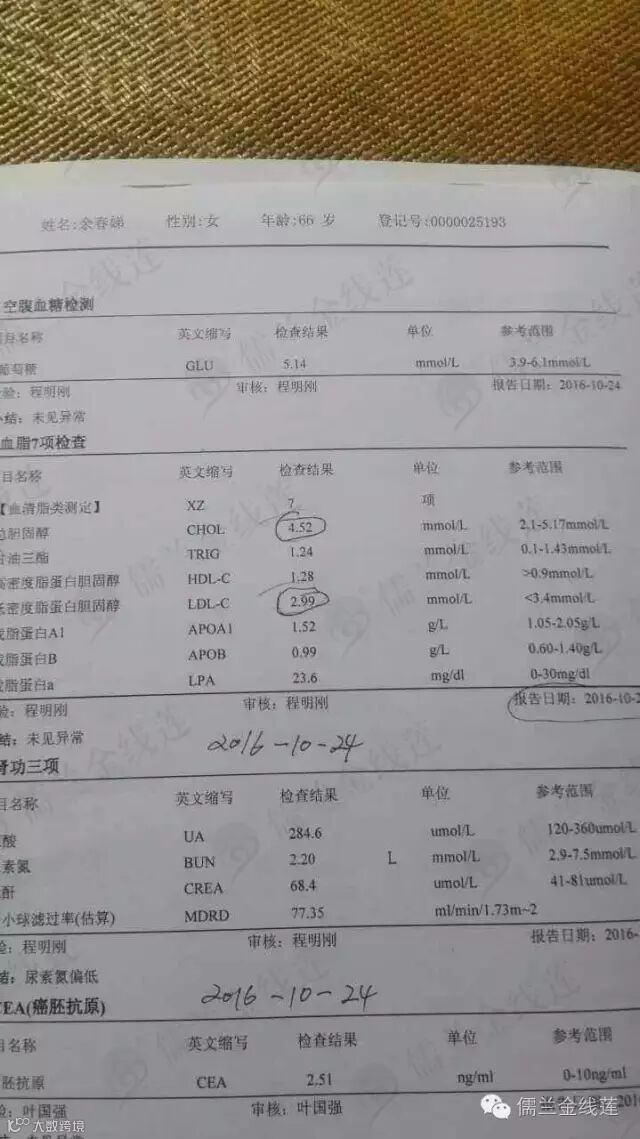 姓名:余春娣 性别:女 年龄:66 岁 登记号:0000025193
空腹血糖检测
目名称 英文缩写 检查结果 单位 参考范围
葡萄糖 GLU 5.14 mmol/L 3.9-6.1mmol/L
验: 程明刚 审核: 程明刚 报告日期: 2016-10-24
结: 未见异常
血脂7项检查
目名称 英文缩写 检查结果 单位 参考范围
【血清脂类测定】 XZ 7 项
总胆固醇 CHOL 4.52 mmol/L 2.1-5.17mmol/L
甘油三酯 TRIG 1.24 mmol/L 0.1-1.43mmol/L
高密度脂蛋白胆固醇 HDL-C 1.28 mmol/L >0.9mmol/L
低密度脂蛋白胆固醇 LDL-C 2.99 mmol/L <3.4mmol/L
脂蛋白A1 APOA1 1.52 g/L 1.05-2.05g/L
脂蛋白B APOB 0.99 g/L 0.60-1.40g/L
脂蛋白a LPA 23.6 mg/dl 0-30mg/dl
验: 程明刚 审核: 程明刚 报告日期: 2016-10-2
结: 未见异常 2016-10-24
肾功三项
目名称 英文缩写 检查结果 单位 参考范围
酸 UA 284.6 umol/L 120-360umol/L
素氮 BUN 2.20 L mmol/L 2.9-7.5mmol/L
酐 CREA 68.4 umol/L 41-81umol/L
小球滤过率(估算) MDRD 77.35 ml/min/1.73m~2
验: 程明刚 审核: 程明刚 报告日期: 2016-
结: 尿素氮偏低 2016-10-24
CEA(癌胚抗原)
目名称 英文缩写 检查结果 单位 参考范围
胚抗原 CEA 2.51 ng/ml 0-10ng/ml
验: 叶国强 审核: 叶国强
儒兰金线莲
大数跨境